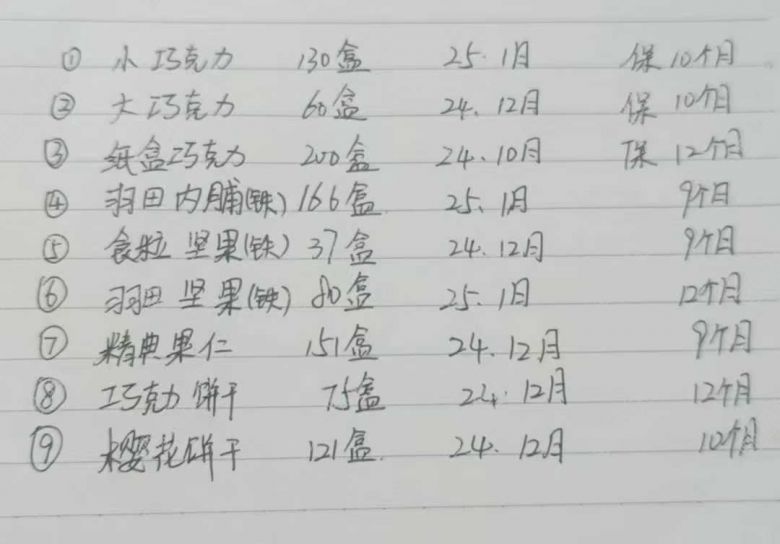 ① 小巧克力 130盒 25.1月 保10个月
② 大巧克力 60盒 24.12月 保10个月
③ 纸盒巧克力 200盒 24.10月 保12个月
④ 羽田内脯(铁) 166盒 25.1月 9个月
⑤ 食粒坚果(铁) 37盒 24.12月 9个月
⑥ 羽田坚果(铁) 80盒 25.1月 12个月
⑦ 精典果仁 151盒 24.12月 9个月
⑧ 巧克力饼干 75盒 24.12月 12个月
⑨ 樱花饼干 121盒 24.12月 10个月